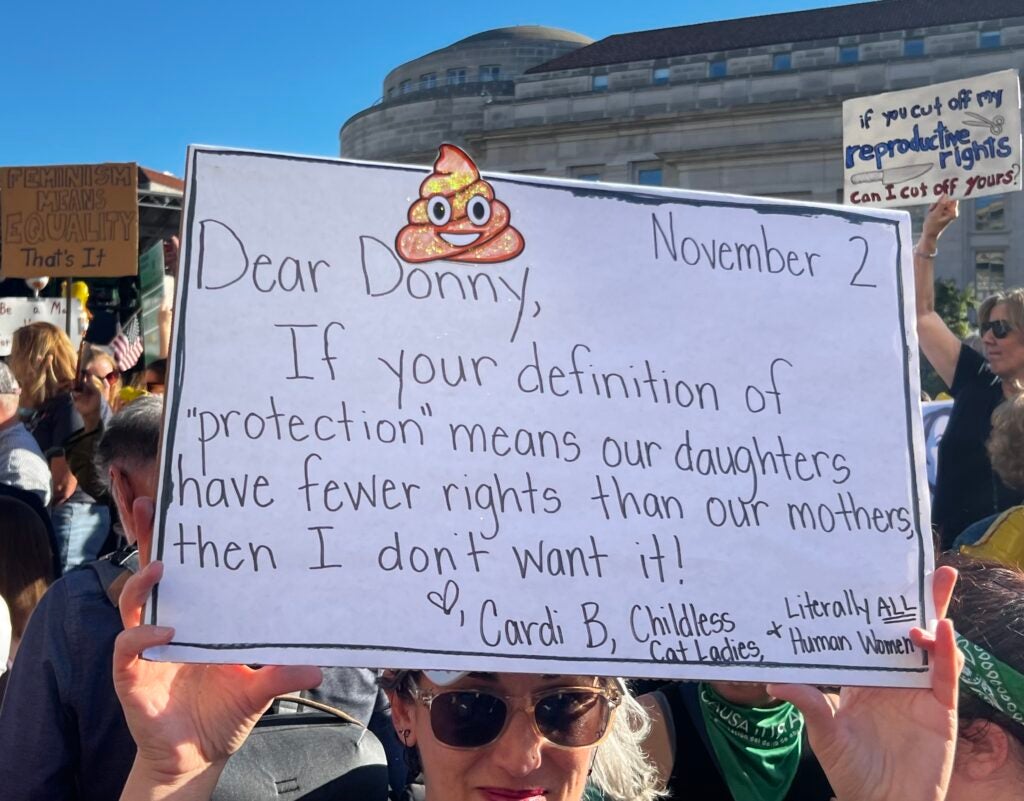 FEMINISM
MEANS
EQUALITY
That's It
Be a
Dear Donny,
November 2
If your definition of
"protection" means our daughters
have fewer rights than our mothers,
then I don't want it!
♡, Cardi B, Childless
Cat Ladies,
+ Literally ALL
Human Women
if you cut off my
reproductive
rights
can I cut off yours?